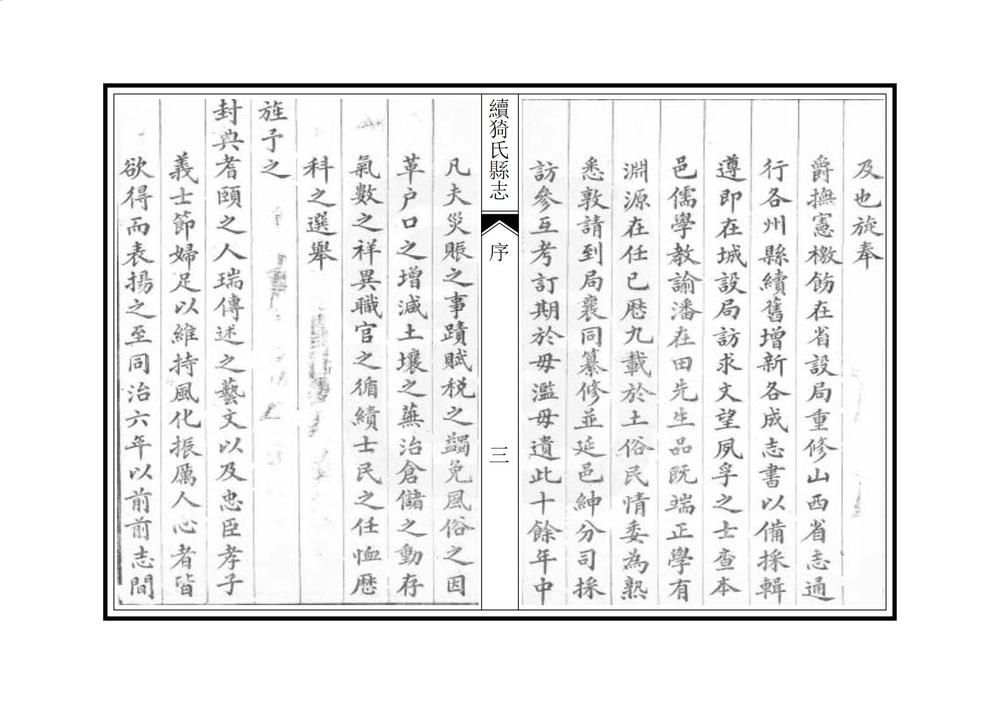 及也旋奉
爵撫憲檄飭在省設局重修山西省志通
行各州縣續舊增新各成志書以備採輯
遵即在城設局訪求文望夙孚之士查本
邑儒學教諭潘在田先生品既端正學有
淵源在任已歴九載於土俗民情委為熟
悉敦請到局襄同纂修並延邑紳分司採
訪參互考訂期於毋濫毋遺此十餘年中
續猗氏縣志
序
三
凡夫災賑之事蹟賦税之蠲免風俗之因
革户口之增減土壤之蕪治倉儲之動存
氣數之祥異職官之循績士民之任恤歴
科之選舉
旌予之
封典者頤之人瑞傳述之藝文以及忠臣孝子
義士節婦足以維持風化振厲人心者皆
欲得而表揚之至同治六年以前前志間